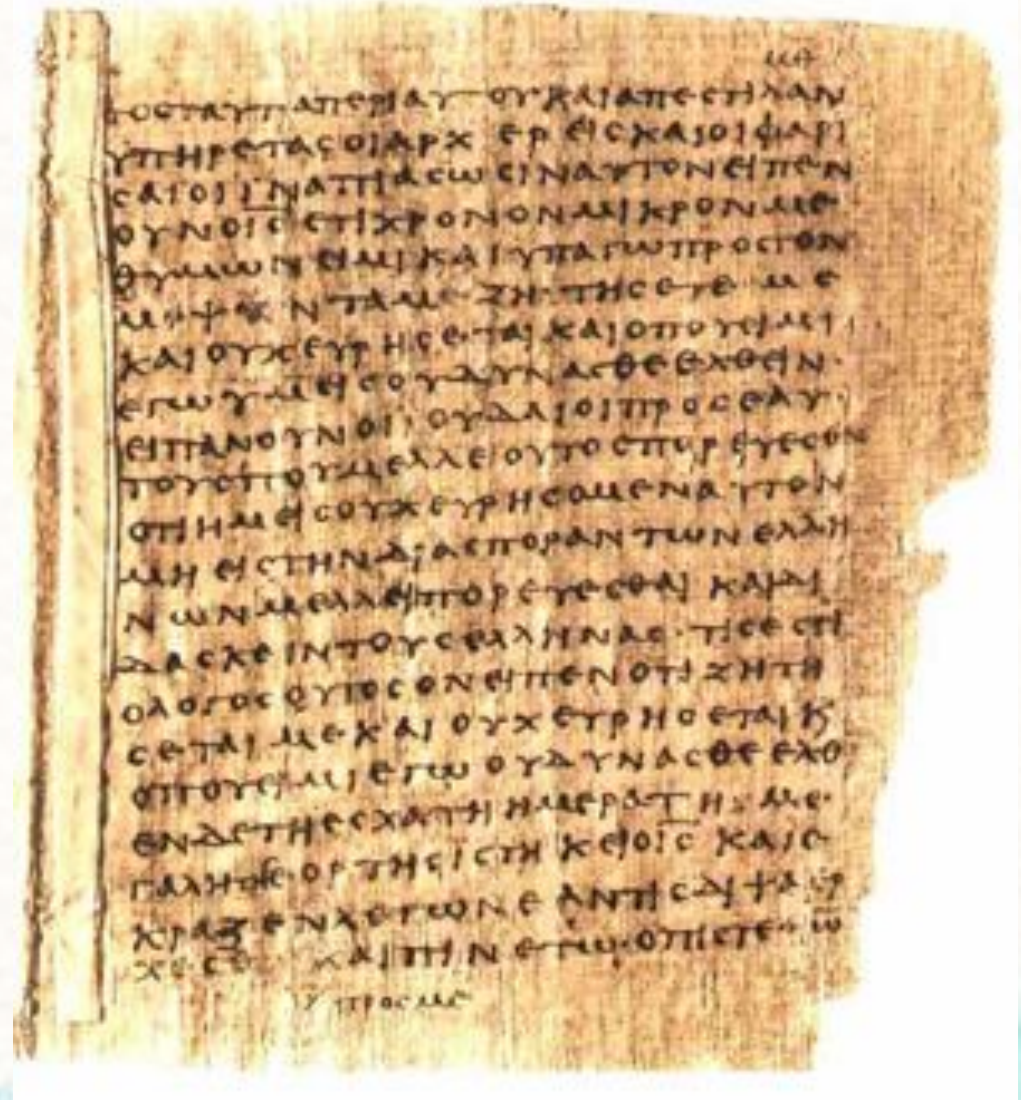 ΜΘ
ΤΟΣ ΤΑΥΤΑ ΠΕΡΙ ΑΥΤΟΥ ΚΑΙ ΑΠΕΣΤΙΛΑΝ
ΥΠΗΡΕΤΑΣ ΟΙ ΑΡΧΕΡΕΙΣ ΚΑΙ ΟΙ ΦΑΡΙ
ΣΑΙΟΙ ΙΝΑ ΠΙΑΣΩΣΙΝ ΑΥΤΟΝ ΕΙΠΕΝ
ΟΥΝ Ο ΙΣ ΕΤΙ ΧΡΟΝΟΝ ΜΙΚΡΟΝ ΜΕ
Θ ΥΜΩΝ ΕΙΜΙ ΚΑΙ ΥΠΑΓΩ ΠΡΟΣ ΤΟΝ
ΠΕΜΨΑΝΤΑ ΜΕ· ΖΗΤΗΣΕΤΕ ΜΕ
ΚΑΙ ΟΥΧ ΕΥΡΗΣΕΤΑΙ ΚΑΙ ΟΠΟΥ ΕΙΜΙ
ΕΓΩ ΥΜΕΙΣ ΟΥ ΔΥΝΑΣΘΕ ΕΛΘΕΙΝ·
ΕΙΠΑΝ ΟΥΝ ΟΙ ΙΟΥΔΑΙΟΙ ΠΡΟΣ ΕΑΥ
ΤΟΥΣ ΠΟΥ ΜΕΛΛΕΙ ΟΥΤΟΣ ΠΟΡΕΥΕΣΘΑΙ
ΟΤΙ ΗΜΕΙΣ ΟΥΧ ΕΥΡΗΣΟΜΕΝ ΑΥΤΟΝ
ΜΗ ΕΙΣ ΤΗΝ ΔΙΑΣΠΟΡΑΝ ΤΩΝ ΕΛΛΗ
ΝΩΝ ΜΕΛΛΕΙ ΠΟΡΕΥΕΣΘΑΙ ΚΑΙ ΔΙ
ΔΑΣΚΕΙΝ ΤΟΥΣ ΕΛΛΗΝΑΣ· ΤΙΣ ΕΣΤΙ
Ο ΛΟΓΟΣ ΟΥΤΟΣ ΟΝ ΕΙΠΕΝ ΟΤΙ ΖΗΤΗ
ΣΕΤΑΙ ΜΕ ΚΑΙ ΟΥΧ ΕΥΡΗΣΕΤΑΙ Κ
ΟΠΟΥ ΕΙΜΙ ΕΓΩ ΟΥ ΔΥΝΑΣΘΕ ΕΛΘ
ΕΝ ΔΕ ΤΗ ΕΣΧΑΤΗ ΗΜΕΡΑ ΤΗ ΜΕ
ΓΑΛΗ ΤΗΣ ΕΟΡΤΗΣ ΙΣΤΗΚΕΙ Ο ΙΣ ΚΑΙ Ε
ΚΡΑΖΕΝ ΛΕΓΩΝ ΕΑΝ ΤΙΣ ΔΙΨΑ ΕΡ
ΧΕΣΘ ΚΑΙ ΠΙΝΕΤΩ· Ο ΠΙΣΤΕΥΩ
ΠΡΟΣ ΜΕ